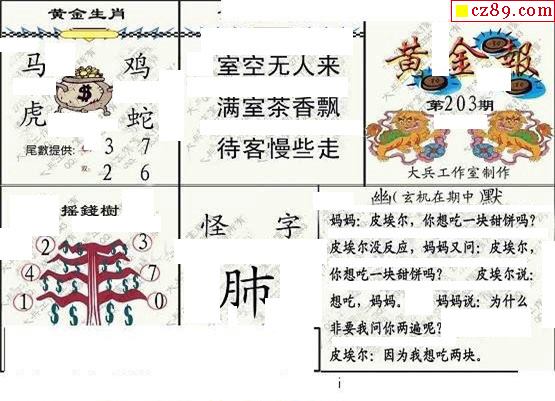 cz89.com
黄金生肖
马 鸡
虎 蛇
尾數提供: 3 7
2 6
室空无人来
满室茶香飘
待客慢些走
黄金報
第203期
大兵工作室制作
摇錢樹
2 3
4 7
1 0
怪 字
肺
幽(玄机在期中)默
妈妈：皮埃尔，你想吃一块甜饼吗？
皮埃尔没反应，妈妈又问：皮埃尔，
你想吃一块甜饼吗？ 皮埃尔说：
想吃，妈妈。 妈妈说：为什么
非要我问你两遍呢？
皮埃尔：因为我想吃两块。
i